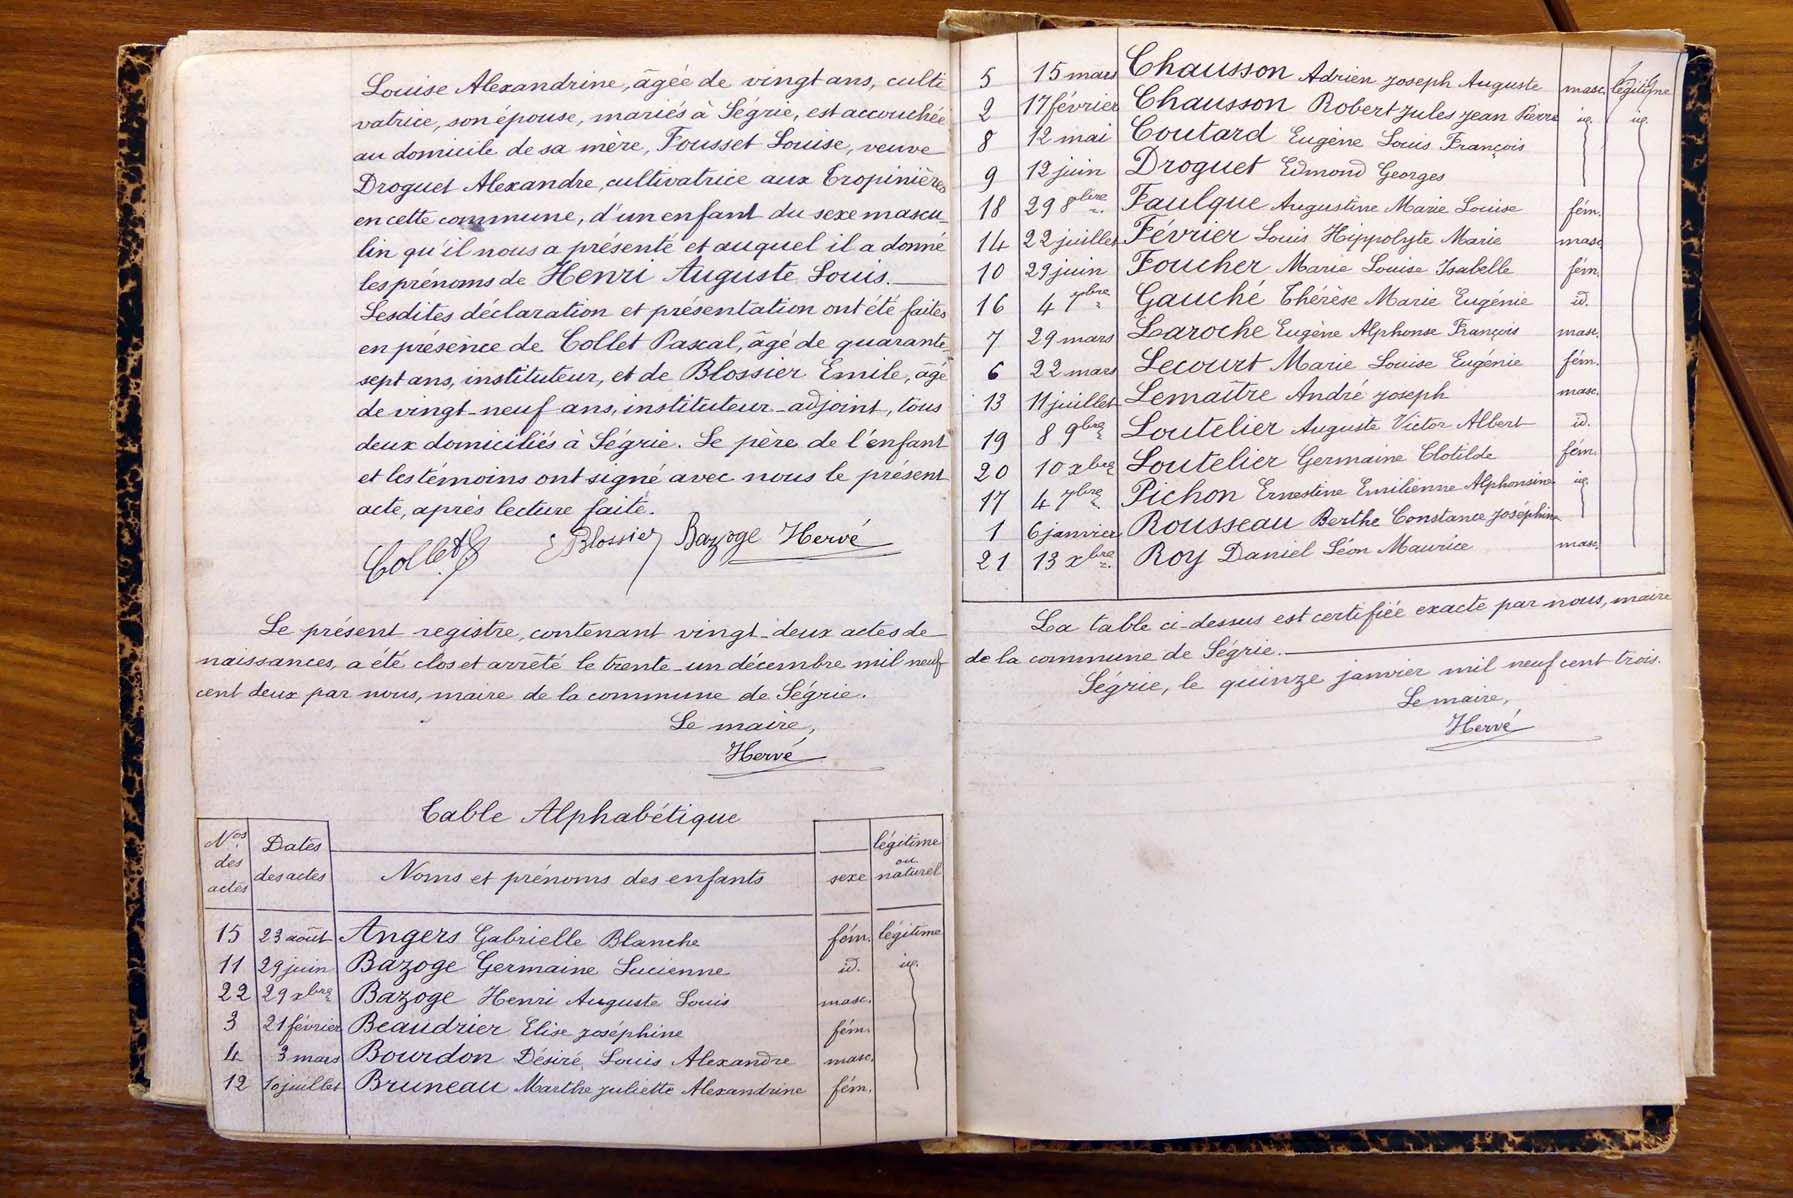 Louise Alexandrine, âgée de vingt ans, culti
vatrice, son épouse, mariés à Ségrie, est accouchée
au domicile de sa mère, Fousset Louise, veuve
Droguet Alexandre, cultivatrice aux Tropinières
en cette commune, d'un enfant du sexe mascu_
lin qu'il nous a présenté et auquel il a donné
les prénoms de Henri Auguste Louis.
Lesdites déclaration et présentation ont été faites
en présence de Collet Pascal, âgé de quarante
sept ans, instituteur, et de Blossier Emile, âgé
de vingt-neuf ans, instituteur-adjoint, tous
deux domiciliés à Ségrie. Le père de l'enfant
et les témoins ont signé avec nous le présent
acte, après lecture faite.
Collet E Blossier Bazoge Hervé
Le présent registre, contenant vingt-deux actes de
naissances, a été clos et arrêté le trente-un décembre mil neuf
cent deux par nous, maire de la commune de Ségrie.
Le maire,
Hervé
Table Alphabétique
Nos des actes Dates des actes Noms et prénoms des enfants sexe légitime ou naturel
15 23 août Angers Gabrielle Blanche fém. légitime
11 29 juin Bazoge Germaine Lucienne id. id.
22 29 xbre Bazoge Henri Auguste Louis masc.
3 21 février Beaudrier Elise Joséphine fém.
4 3 mars Bourdon Désiré Louis Alexandre masc.
12 10 juillet Bruneau Marthe Juliette Alexandrine fém.
5 15 mars Chausson Adrien Joseph Auguste masc. légitime
2 17 février Chausson Robert Jules Jean Pierre id. id.
8 12 mai Coutard Eugène Louis François
9 12 juin Droguet Edmond Georges
18 29 8bre Faulque Augustine Marie Louise fém.
14 22 juillet Février Louis Hippolyte Marie masc.
10 29 juin Foucher Marie Louise Isabelle fém.
16 4 7bre Gauché Thérèse Marie Eugénie id.
7 29 mars Laroche Eugène Alphonse François masc.
6 22 mars Lecourt Marie Louise Eugénie fém.
13 11 juillet Lemaître André Joseph masc.
19 8 9bre Loutelier Auguste Victor Albert id.
20 10 xbre Loutelier Germaine Clotilde fém.
17 4 7bre Pichon Ernestine Emilienne Alphonsine id.
1 6 janvier Rousseau Berthe Constance Joséphine
21 13 xbre Roy Daniel Léon Maurice masc.
La table ci-dessus est certifiée exacte par nous, maire
de la commune de Ségrie.
Ségrie, le quinze janvier mil neuf cent trois.
Le maire,
Hervé